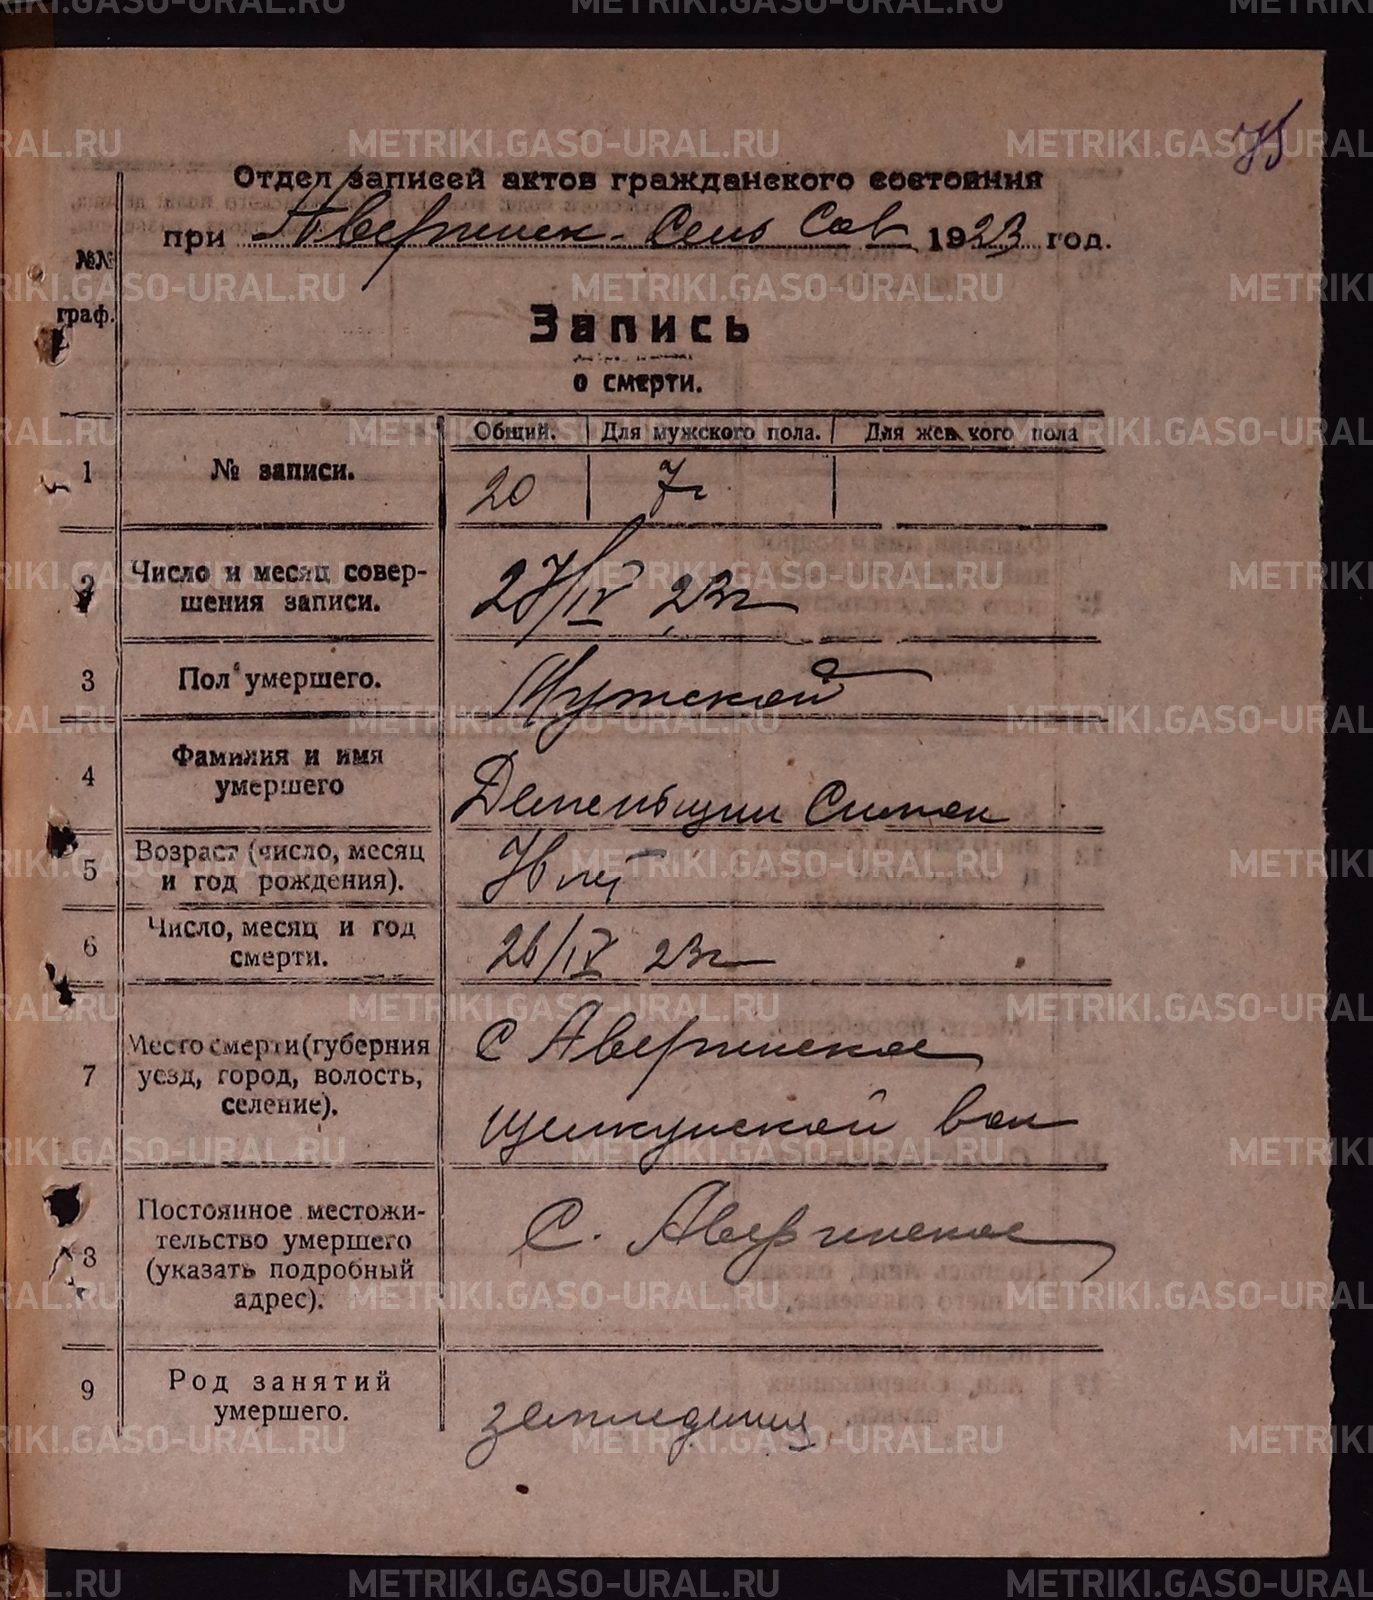 75
Отдел записей актов гражданского состояния
при Аверинск. Сель Сов 1923 год.
№№ граф.
Запись
о смерти.
Общий. Для мужского пола. Для женского пола
1 № записи. 20 7
2 Число и месяц совершения записи. 27/IV 23г
3 Пол умершего. Мужской
4 Фамилия и имя умершего Деменьшин Симон
5 Возраст (число, месяц и год рождения). 76 лет
6 Число, месяц и год смерти. 26/IV 23г
7 Место смерти (губерния уезд, город, волость, селение). С Аверинское
Щелкунской вол
8 Постоянное местожительство умершего (указать подробный адрес). С. Аверинское
9 Род занятий умершего. земледелец
METRIKI.GASO-URAL.RU